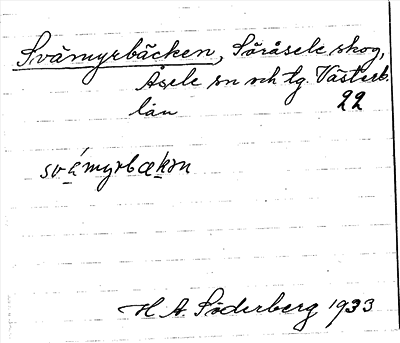 Svämyrbäcken, Söråsele skog,
Åsele sn och tg. Västerb.
län 22
svämyrbækɘn
H A. Söderberg 1933